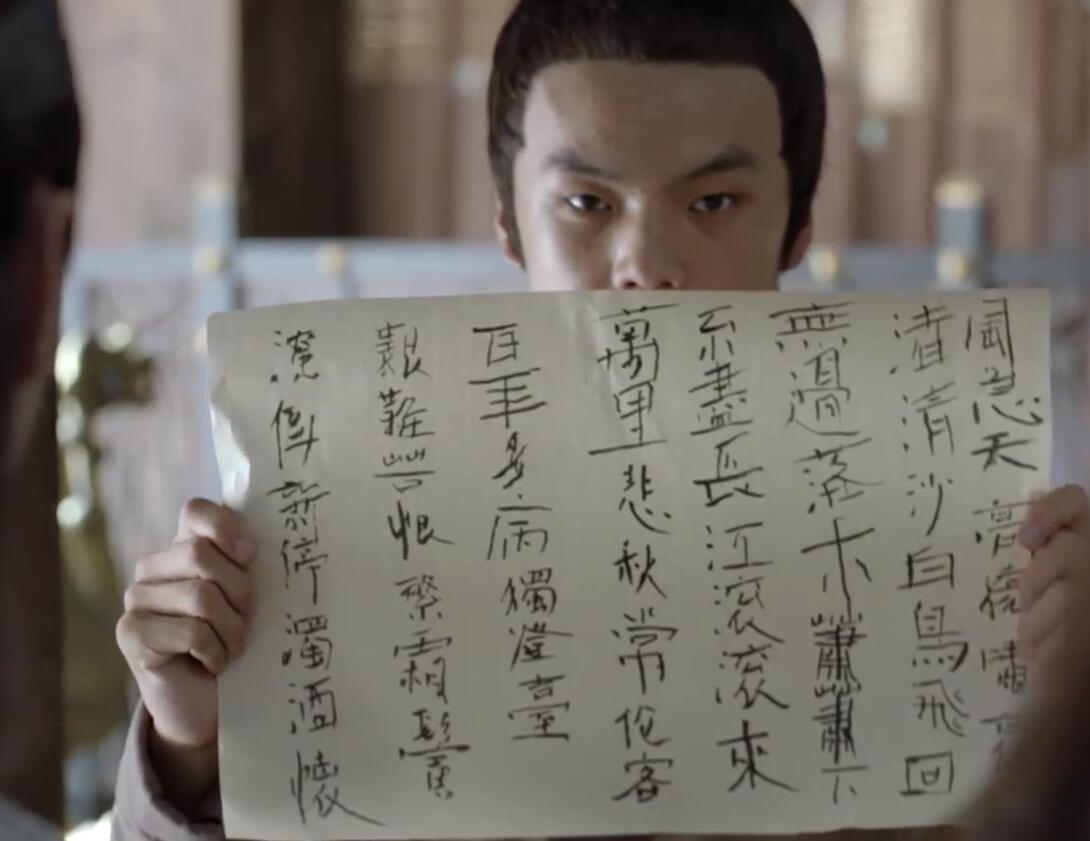 風急天高猿嘯
渚清沙白鳥飛回
無過落木蕭蕭下
不盡長江滾滾來
萬里悲秋常作客
百年多病獨澄臺
艱難苦恨繁霜鬢
潦倒新停濁酒懷